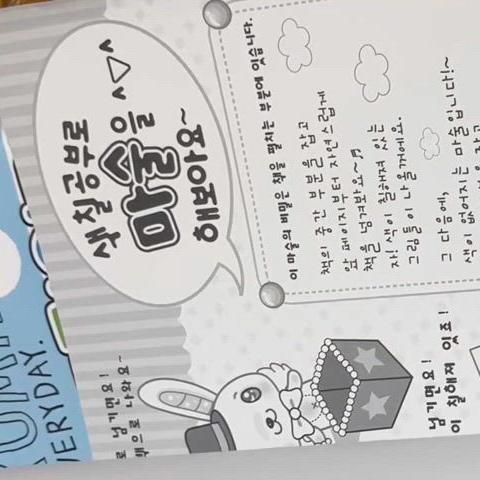 색칠공부로
마술을
해보아요~
이 마술의 비밀은 책을 펼치는 부분에 있습니다.
책의 중간 부분을 잡고
앞 페이지부터 자연스럽게
책을 넘겨봐요~♬
자! 색이 칠해져 있는
그림들이 나올꺼에요.
그 다음에,
색이 없어지는 마술입니다!~
넘기면요!
이 칠해져 있죠!
로 넘기면요!
으로 나와요~
VERYDAY.